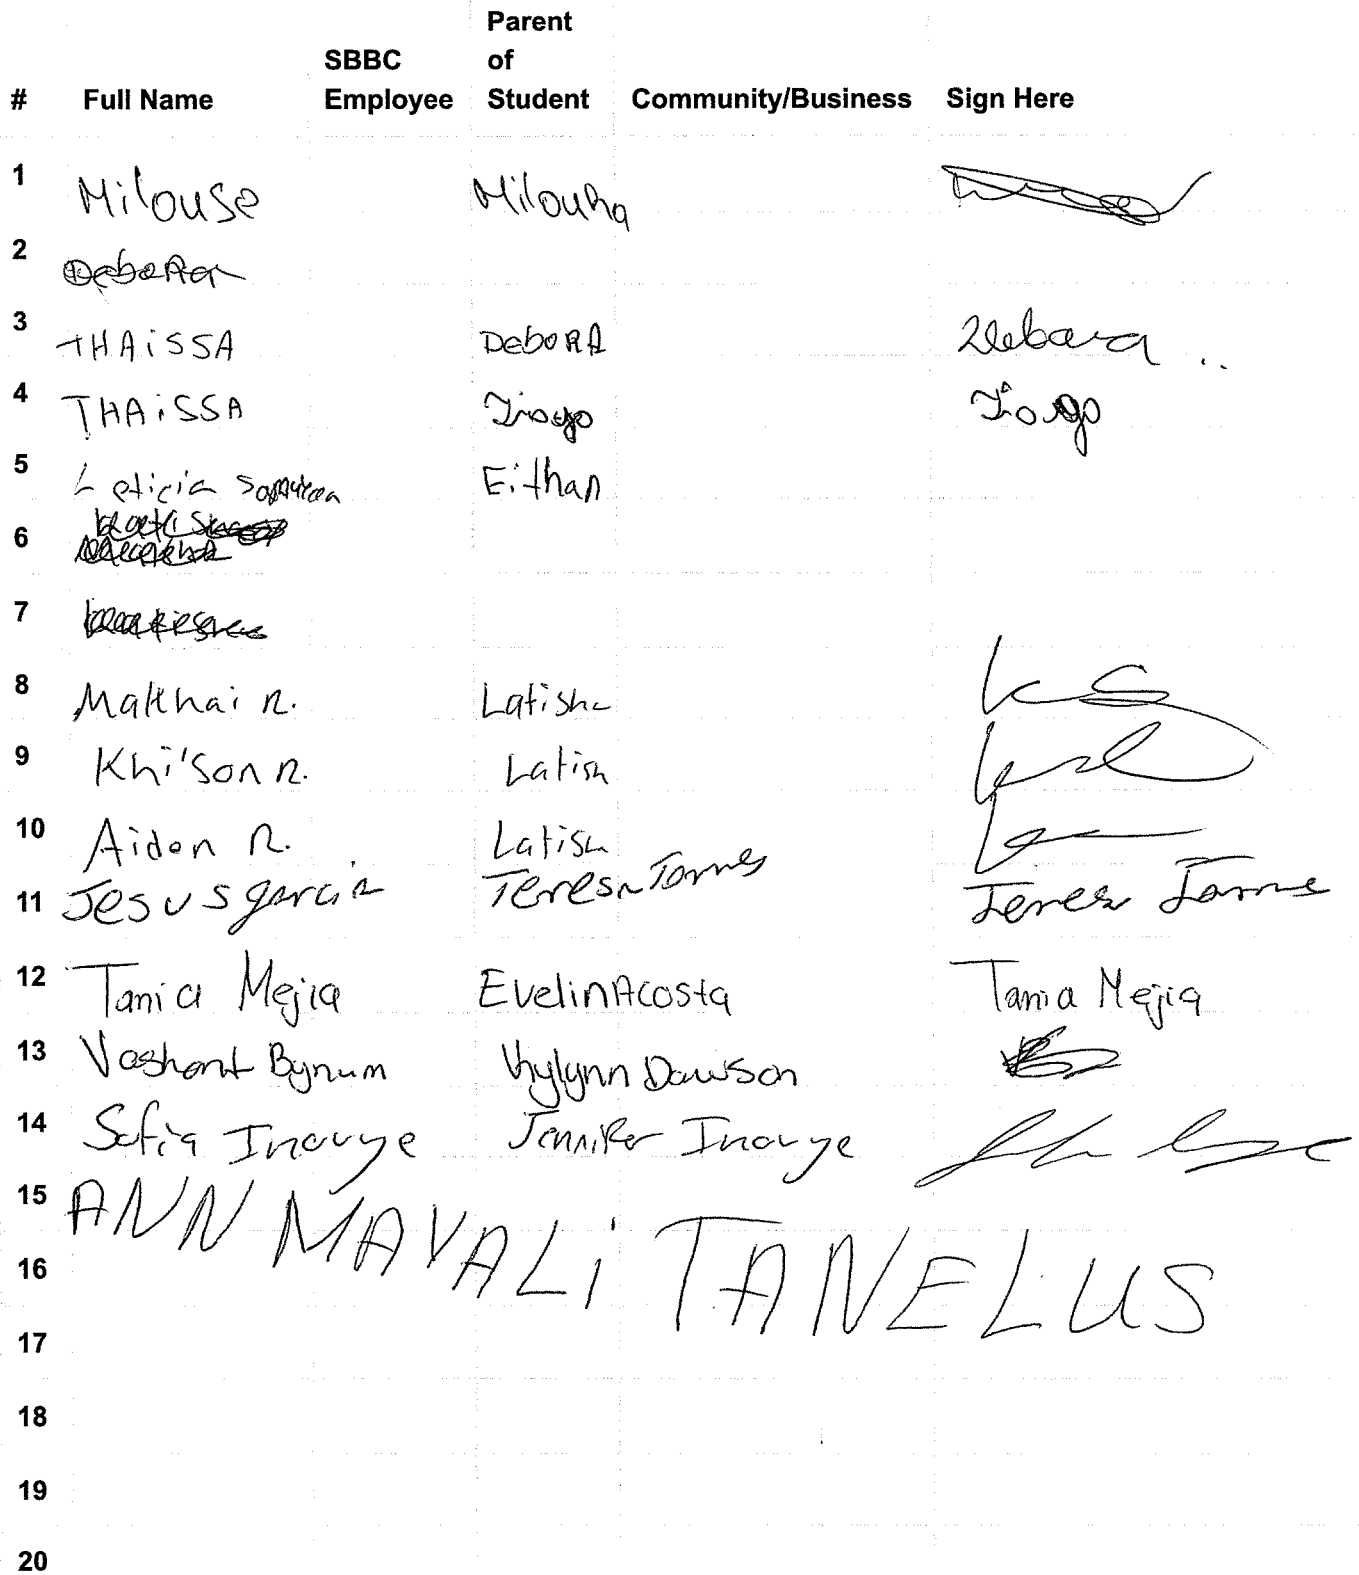 Parent
SBBC of
# Full Name Employee Student Community/Business Sign Here
1 Milouse Milouka
2 Debora
3 THAiSSA DeboRA Debora ..
4 THAiSSA Tiago Tiago
5 Leticia Eithan
6
7
8 Malkhai R. Latisha
9 Khi'son R. Latish
10 Aidan R. Latish
11 Jesus garcia Teresa Torres Teresa Torres
12 Tania Mejia Evelin Acosta Tania Mejia
13 Vashont Bynum Khylynn Dawson
14 Sofia Inouye Jennifer Inouye
15 ANN MAVALi TANELUS
16
17
18
19
20